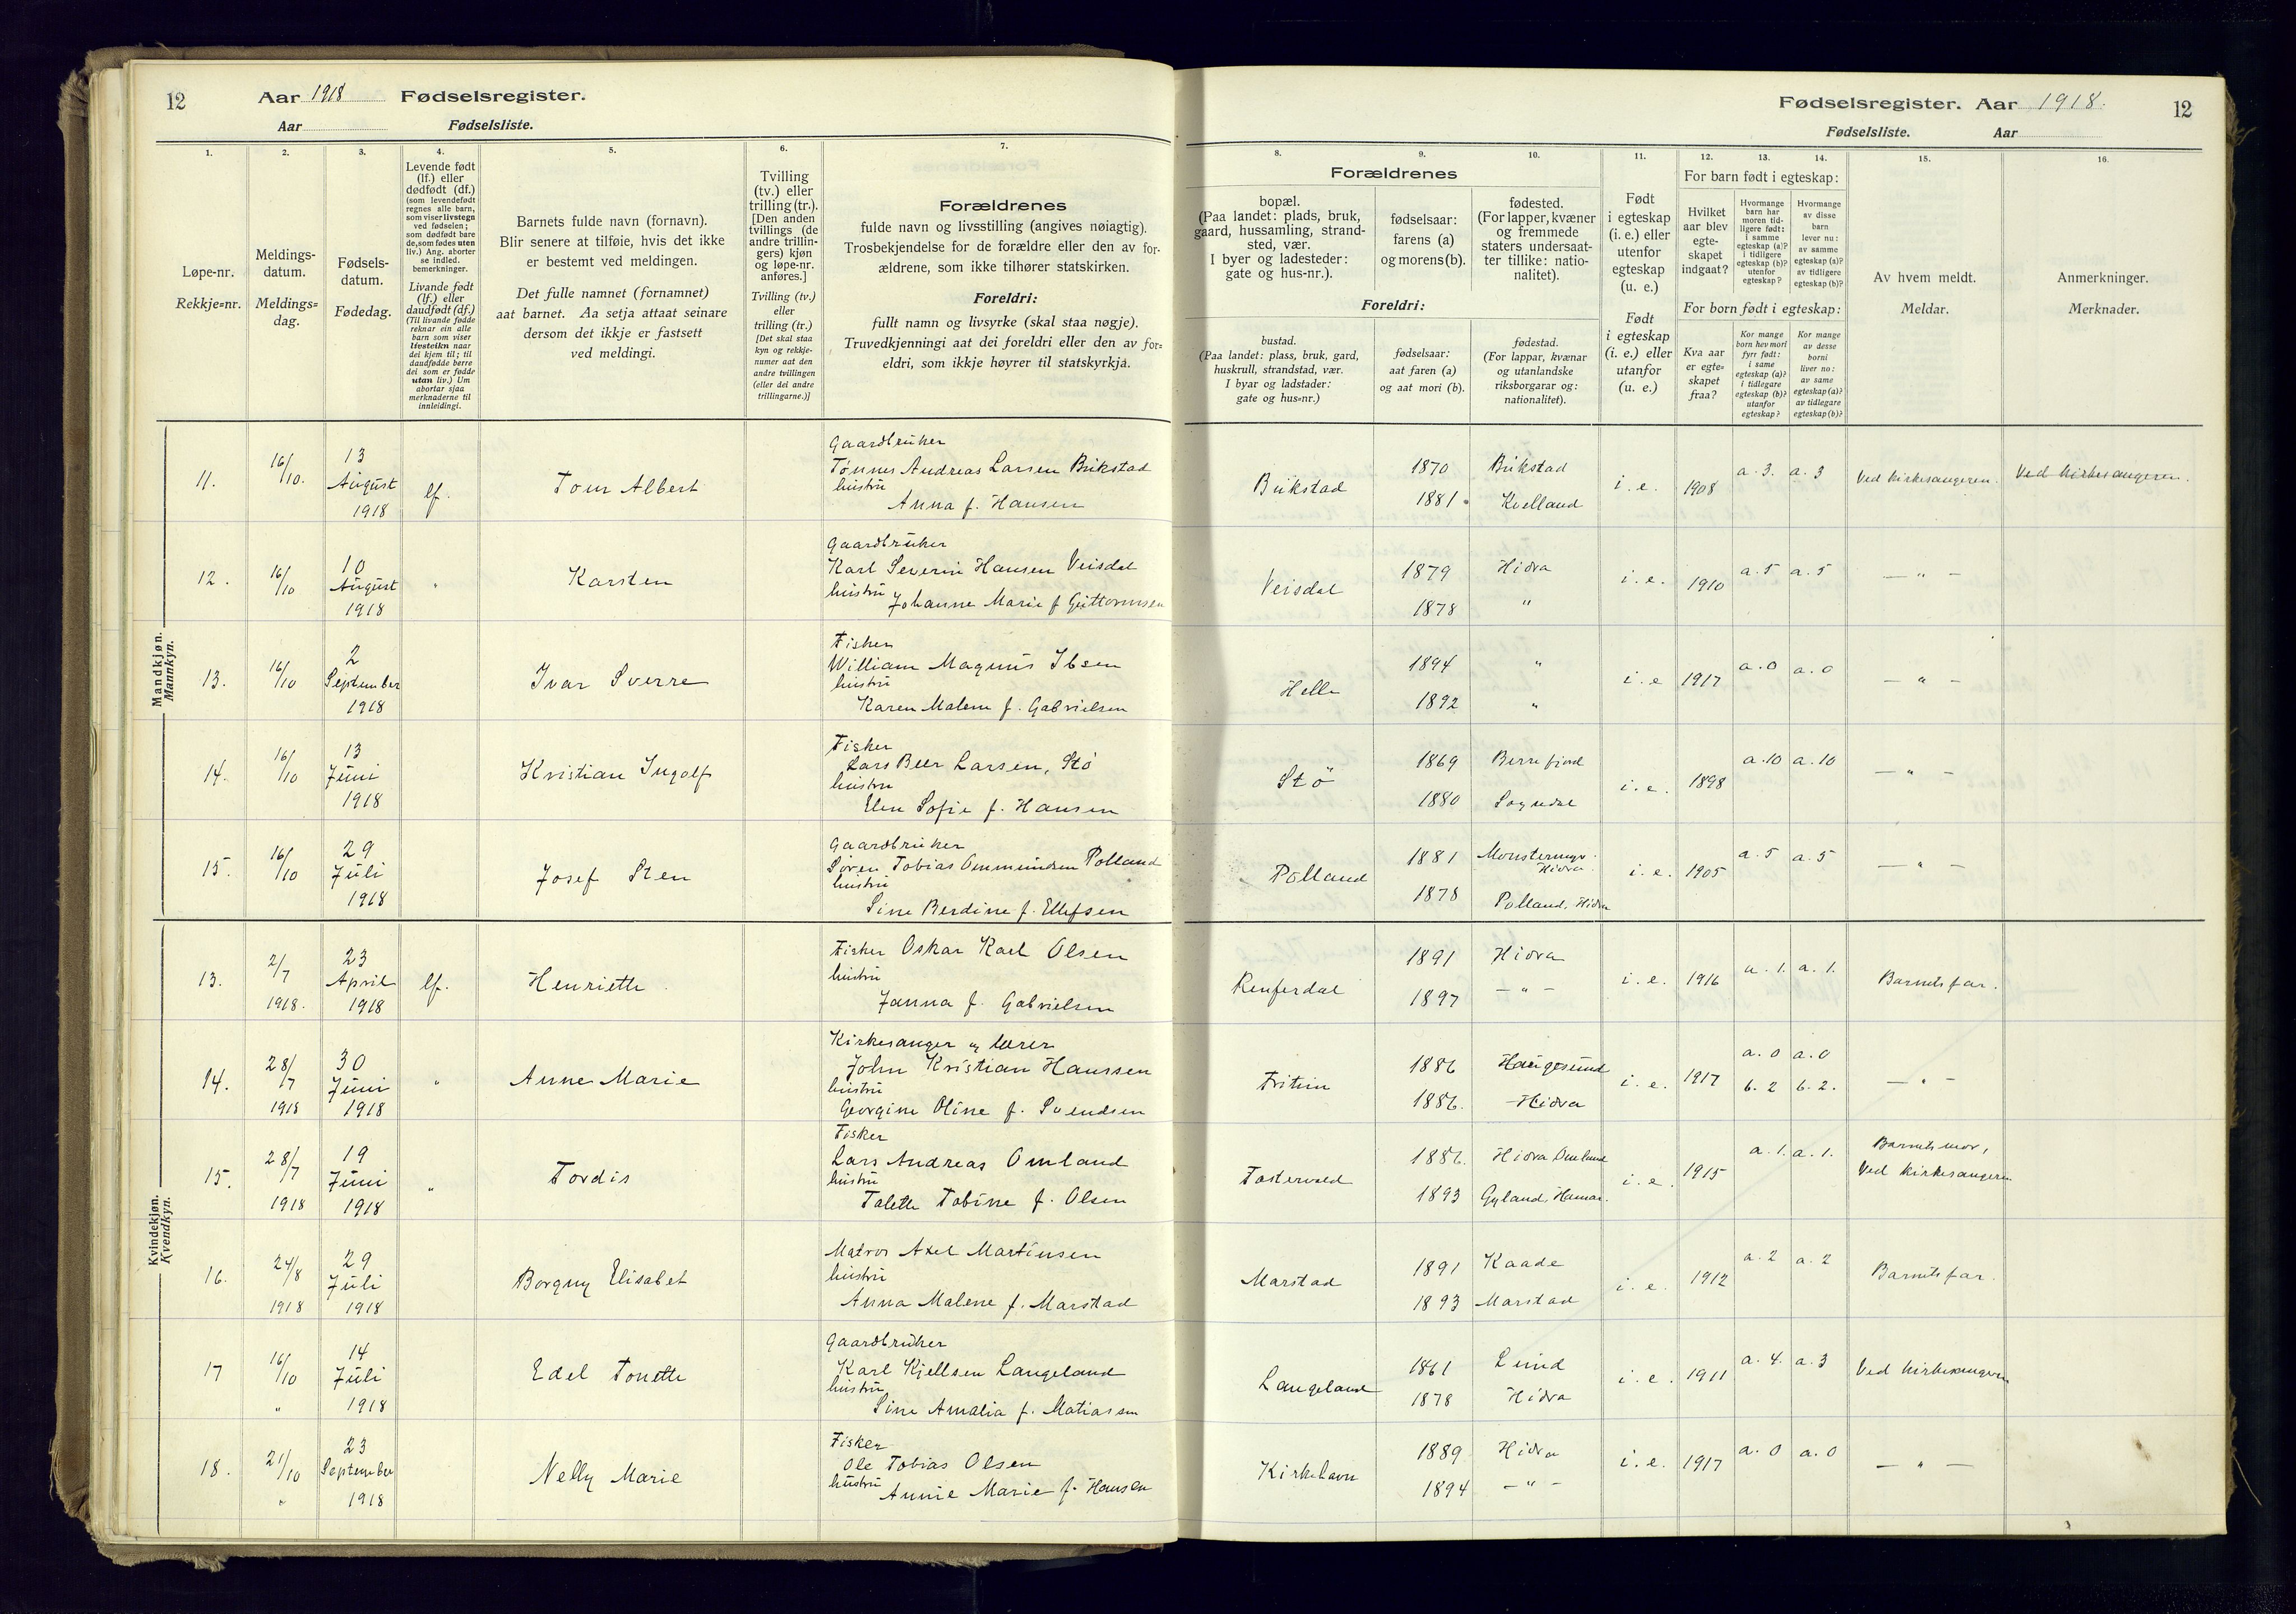 12
Aar 1918 Fødselsregister.
Aar Fødselsliste.
1.
Løpe-nr.
Rekkje=nr.
2.
Meldings-
datum.
Meldings=
dag.
3.
Fødsels-
datum.
Fødedag.
4.
Levende født
(lf.) eller
dødfødt (df.)
(som levendefødt
regnes alle barn,
som viser livstegn
ved fødselen;
som dødfødt bare
de, som fødes uten
liv.) Ang. aborter
se indled.
bemerkninger.
Livande født
(lf.) eller
daudfødt (df.)
(Til livande fødde
reknar ein alle
barn som viser
livsteikn naar
dei kjem til; til
daudfødde berre
dei som er fødde
utan liv.) Um
abortar sjaa
merknaderne til
innleidingi.
5.
Barnets fulde navn (fornavn).
Blir senere at tilføie, hvis det ikke
er bestemt ved meldingen.
Det fulle namnet (fornamnet)
aat barnet. Aa setja attaat seinare
dersom det ikkje er fastsett
ved meldingi.
6.
Tvilling
(tv.) eller
trilling (tr.).
[Den anden
tvillings (de
andre trillin-
gers) kjøn
og løpe-nr.
anføres.]
Tvilling (tv.)
eller
trilling (tr.)
[Det skal staa
kyn og rekkje-
numer aat den
andre tvillingen
(eller dei andre
trillingarne.)]
7.
Forældrenes
fulde navn og livsstilling (angives nøiagtig).
Trosbekjendelse for de forældre eller den av for-
ældrene, som ikke tilhører statskirken.
Foreldri:
fullt namn og livsyrke (skal staa nøgje).
Truvedkjenningi aat dei foreldri eller den av for=
eldri, som ikkje høyrer til statskyrkja.
Mandkjøn.
Mannkyn.
11. 16/10. 13 August 1918 lf. Tom Albert
Gaardbruker
Tønnes Andreas Larsen Brikstad
hustru
Anna f. Hansen
12. 16/10 10 August 1918 " Karsten
Gaardbruker
Karl Severin Hansen Veisdal
hustru
Johanne Marie f Guttormsen
13. 16/10 2 September 1918 Ivar Sverre
Fisker
William Magnus Ibsen
hustru
Karen Malene f. Gabrielsen
14. 16/10 13 Juni 1918 Kristian Ingolf
Fisker
Lars Beer Larsen, Stö
hustru
Elen Sofie f. Hansen
15. 16/10 29 Juli 1918 Josef Sten
Gaardbruker
Søren Tobias Ommundsen Polland
hustru
Sine Berdine f. Ellefsen
Kvindekjøn.
Kvendkyn.
13. 2/7 1918. 23 April 1918 lf. Henriette
Fisker Oskar Karl Olsen
hustru
Janna f. Gabrielsen
14. 28/7 1918 30 Juni 1918 " Anne Marie
Kirkesanger og lærer
John Kristian Hanssen
hustru
Georgine Oline f. Svendsen
15. 28/7 1918 19 Juni 1918 " Tordis
Fisker
Lars Andreas Omland
hustru
Talette Tobine f. Olsen
16. 24/8 1918 29 Juli 1918 Borgny Elisabet
Matros Axel Martinsen
hustru
Anna Malene f. Marstad
17 16/10 " 14 Juli 1918 Edel Tonette
Gaardbruker
Karl Kjellsen Langeland
hustru
Sine Amalia f. Matiassen
18. 21/10 " 23 September 1918 Nelly Marie
Fisker
Ole Tobias Olsen
hustru
Annie Marie f. Hansen
Fødselsregister. Aar 1918. 12
Fødselsliste. Aar
8.
Forældrenes
bopæl.
(Paa landet: plads, bruk,
gaard, hussamling, strand-
sted, vær.
I byer og ladesteder:
gate og hus-nr.).
Foreldri:
bustad.
(Paa landet: plass, bruk, gard,
huskrull, strandstad, vær.
I byar og ladstader:
gate og hus=nr.)
9.
fødselsaar:
farens (a)
og morens (b).
fødselsaar:
aat faren (a)
og aat mori (b).
10.
fødested.
(For lapper, kvæner
og fremmede
staters undersaat-
ter tillike: natio-
nalitet).
fødestad.
(For lappar, kvænar
og utanlandske
riksborgarar og:
nationalitet).
11.
Født
i egteskap
(i. e.) eller
utenfor
egteskap
(u. e.)
Født
i egteskap
(i. e.) eller
utanfor
(u. e.)
12. 13. 14.
For barn født i egteskap:
Hvilket
aar blev
egte-
skapet
indgaat?
Hvormange
barn har
moren tid-
ligere født:
i samme
egteskap (a)?
i tidligere
egteskap (b)?
utenfor
egteskap?
Hvormange
av disse
barn
lever nu:
av samme
egteskap (a)?
av tidligere
egteskap (b)?
For born født i egteskap:
Kva aar
er egte=
skapet
fraa?
Kor mange
born hev mori
fyrr født:
i same
egteskap (a)?
i tidlegare
egteskap (b)?
utanfor
egteskap?
Kor mange
av desse
borni
liver no:
av same
egteskap (a)?
av tidlegare
egteskap (b)?
15.
Av hvem meldt.
Meldar.
16.
Anmerkninger.
Merknader.
Brikstad 1870 Brikstad i. e. 1908 a. 3. a. 3 Ved kirkesangeren. Ved kirkesangeren.
1881. Kvelland
Veisdal 1879 Hidra i. e. 1910 a. 5 a. 5 — " —
1878 "
Helle 1894 " i. e 1917 a. 0 a. 0 — " —
1892 "
Stö 1869 Berrefjord i. e. 1898 a. 10 a. 10 — " —
1880 Sogndal
Polland 1881 Hidra i. e. 1905 a. 5 a. 5 — " —
1878 Polland, Hidra
Renferdal 1891 Hidra i. e. 1916 a. 1. a. 1. Barnets far.
1897 — " —
1886 Haugesund i. e. 1917 a. 0 a. 0 — " —
1886. Hidra b. 2 b. 2.
1886. Hidra Omland i. e. 1915 a. 1. a. 1. Barnets mor,
1893 Gyland, Ved kirkesangeren
Marstad 1891 Kaade i. e. 1912 a. 2 a. 2 Barnets far.
1893 Marstad
Langeland 1861 Lund i. e. 1911 a. 4. a. 3 Ved kirkesangeren
1878 Hidra
Kirkehavn 1889 Hidra i. e. 1917 a. 0 a. 0 — " —
1894 — " —